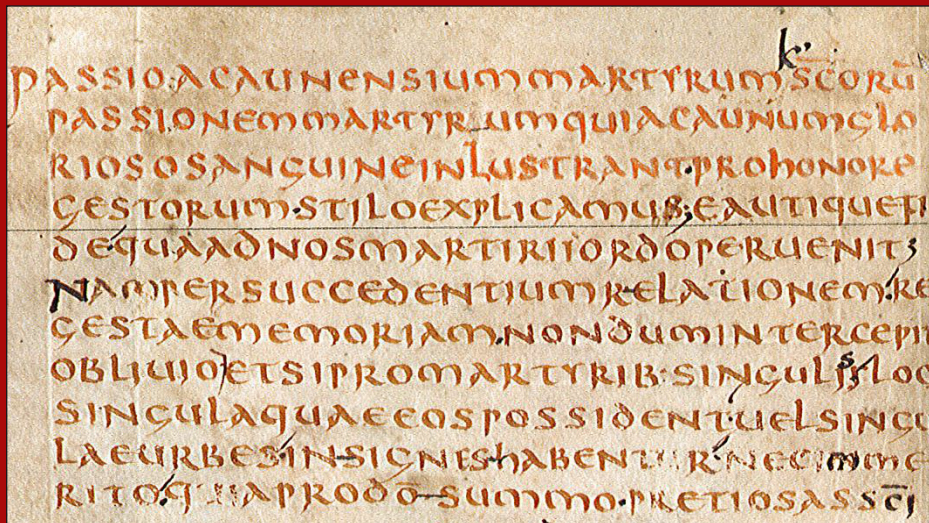 k'
PASSIO·ACAUNENSIUMMARTYRUMSCORŪ
PASSIONEMMARTYRUMQUIACAUNUMGLO
RIOSOSANGUINEINLUSTRANT·PROHONORE
GESTORUM·STILOEXPLICAMUS;EAUTIQUEFI
DEQUAADNOSMARTIRIIORDOPERUENIT;
NAMPERSUCCEDENTIUMRELATIONEM·RE
GESTAEMEMORIAMNONDUMINTERCEPIT
OBLIUIO ETSIPROMARTYRIB·SINGULISLOC
SINGULAQUAEEOSPOSSIDENT·UELSINGU
LAEURBESINSIGNESHABENTUR·NECIMME
RITO·QUIAPRODŌSUMMO·PRETIOSASSC̄I